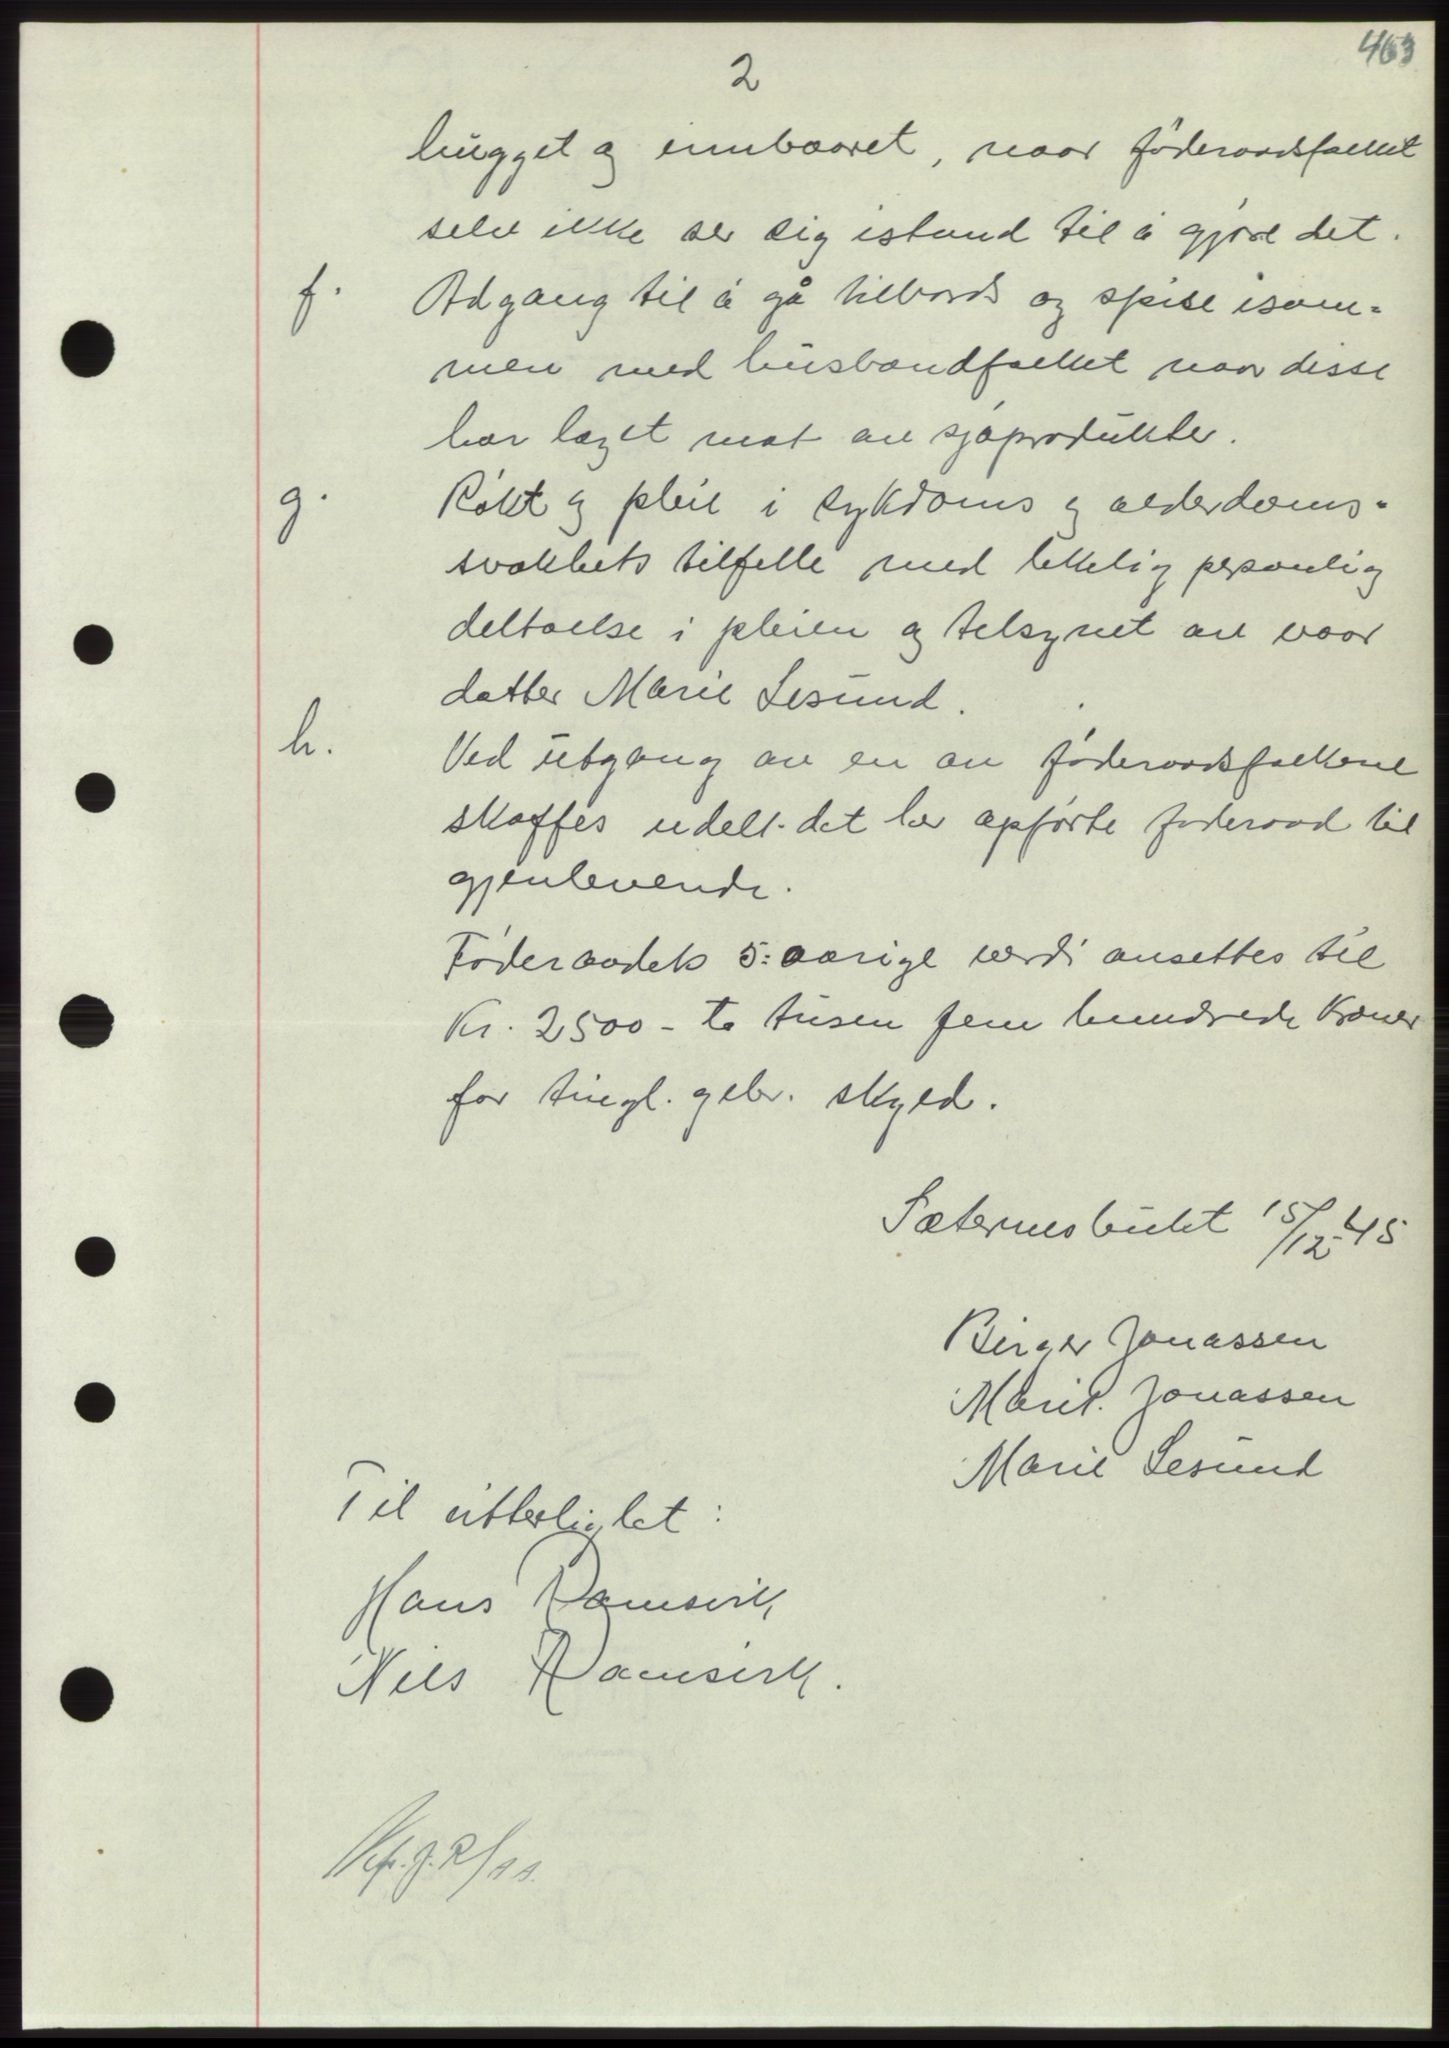 463
2
hugget og innbaaret, naar föderaadsfolket
selv ikke ser sig istand til å gjöre det.
f. Adgang til å gå tilbords og spise isam-
men med husbondfolket naar disse
har laget mat av sjöprodukter.
g. Rökt og pleie i sykdoms og alderdoms-
svakhets tilfelle med personlig
deltaelse i pleien og tilsynet av vaar
datter Marie Lesund.
h. Ved utgang av en av föderaadsfolkene
skaffes udelt det her opförte föderaad til
gjenlevende.
Föderaadets 5: aarige verdi ansettes til
Kr. 2500 - to tusen fem hundrede Kroner
for tingl. gebr. skyld.
Sæternesbukt 15/12-45
Birger Jonassen
Marit Jonassen
Marie Lesund
Til vitterlighet:
Hans Ramsvik
Nils Ramsvik.